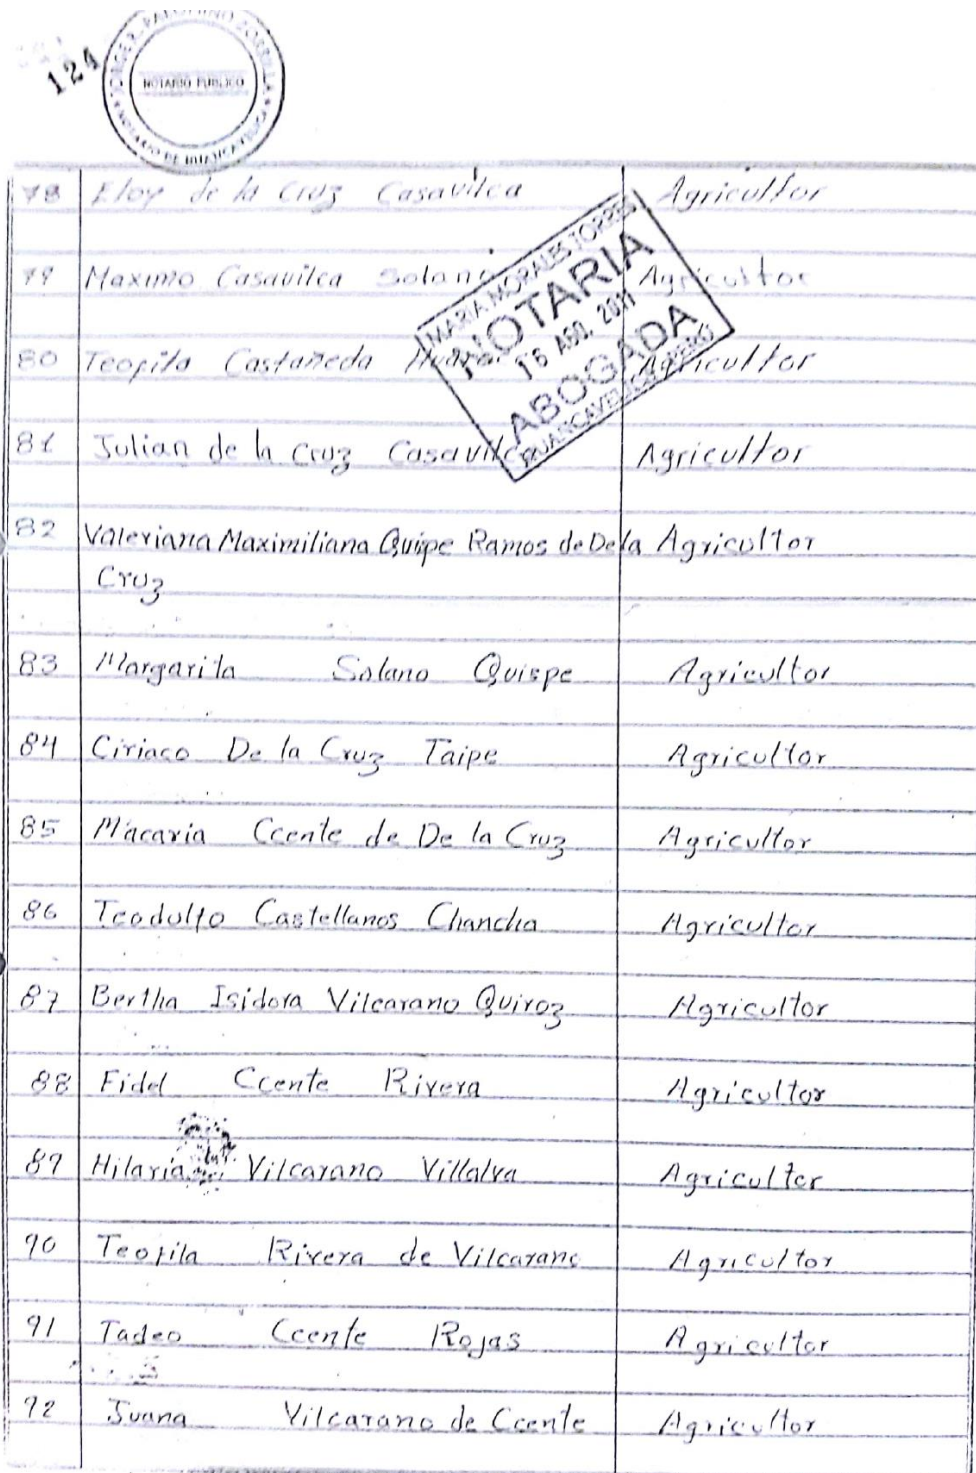 124
JORGE E. PALOMINO
NOTARIO PUBLICO
NOTARIO DE HUANCAVELICA
78 Eloy de la Cruz Casavilca Agricultor
79 Maximo Casavilca Solano Agricultor
80 Teofila Castañeda Agricultor
81 Julian de la Cruz Casavilca Agricultor
MARIA MORALES TORRES
NOTARIA
16 AGO. 2011
ABOGADA
HUANCAVELICA - PERÚ
82 Valeriana Maximiliana Quipe Ramos de De la Agricultor
Cruz
83 Margarita Solano Quispe Agricultor
84 Ciriaco De la Cruz Taipe Agricultor
85 Macaria Ccente de De la Cruz Agricultor
86 Teodulfo Castellanos Chancha Agricultor
87 Bertha Isidora Vilcarano Quiroz Agricultor
88 Fidel Ccente Rivera Agricultor
89 Hilaria Vilcarano Villalva Agricultor
90 Teofila Rivera de Vilcarano Agricultor
91 Tadeo Ccente Rojas Agricultor
92 Juana Vilcarano de Ccente Agricultor